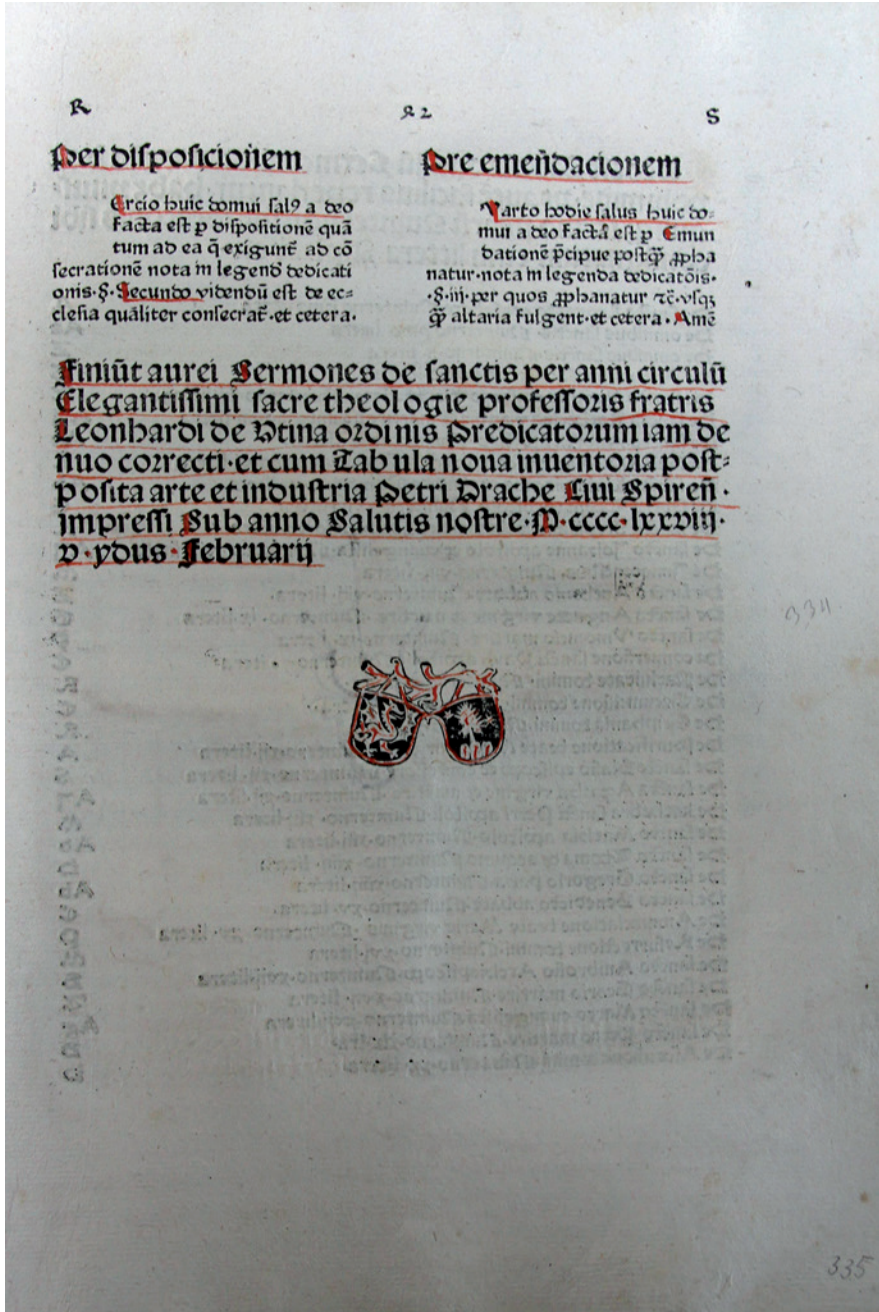 R
S
Per disposicionem
Ercio huic domui salꝰ a deo
facta est ꝑ dispositionē quā
tum ad ea q̄ exigunt̄ ad cō
secrationē nota in legend̄ dedicati
onis·§·Secundo videndū est de ec=
clesia qualiter consecrat̄·et cetera·
Pre emen̄dacionem
Varto hodie salus huic do-
mui a deo facta est ꝑ Emun
dationē p̄cipue postꝙ ꝓpha
natur·nota in legenda dedicatōis·
·§·iij·per quos ꝓphanatur ⁊c̄·vsqꝫ
ꝙ altaria fulgent·et cetera·Amē
Finiūt aurei Sermones de sanctis per anni circulū
Elegantissimi sacre theologie professoris fratris
Leonhardi de Vtina ordinis Predicatorum iam de
nuo correcti·et cum Tabula noua inuentoria post=
posita arte et industria Petri Drache Ciui Spiren̄·
impressi Sub anno Salutis nostre·M·cccc·lxxviij·
v·ydus·Februarij
335